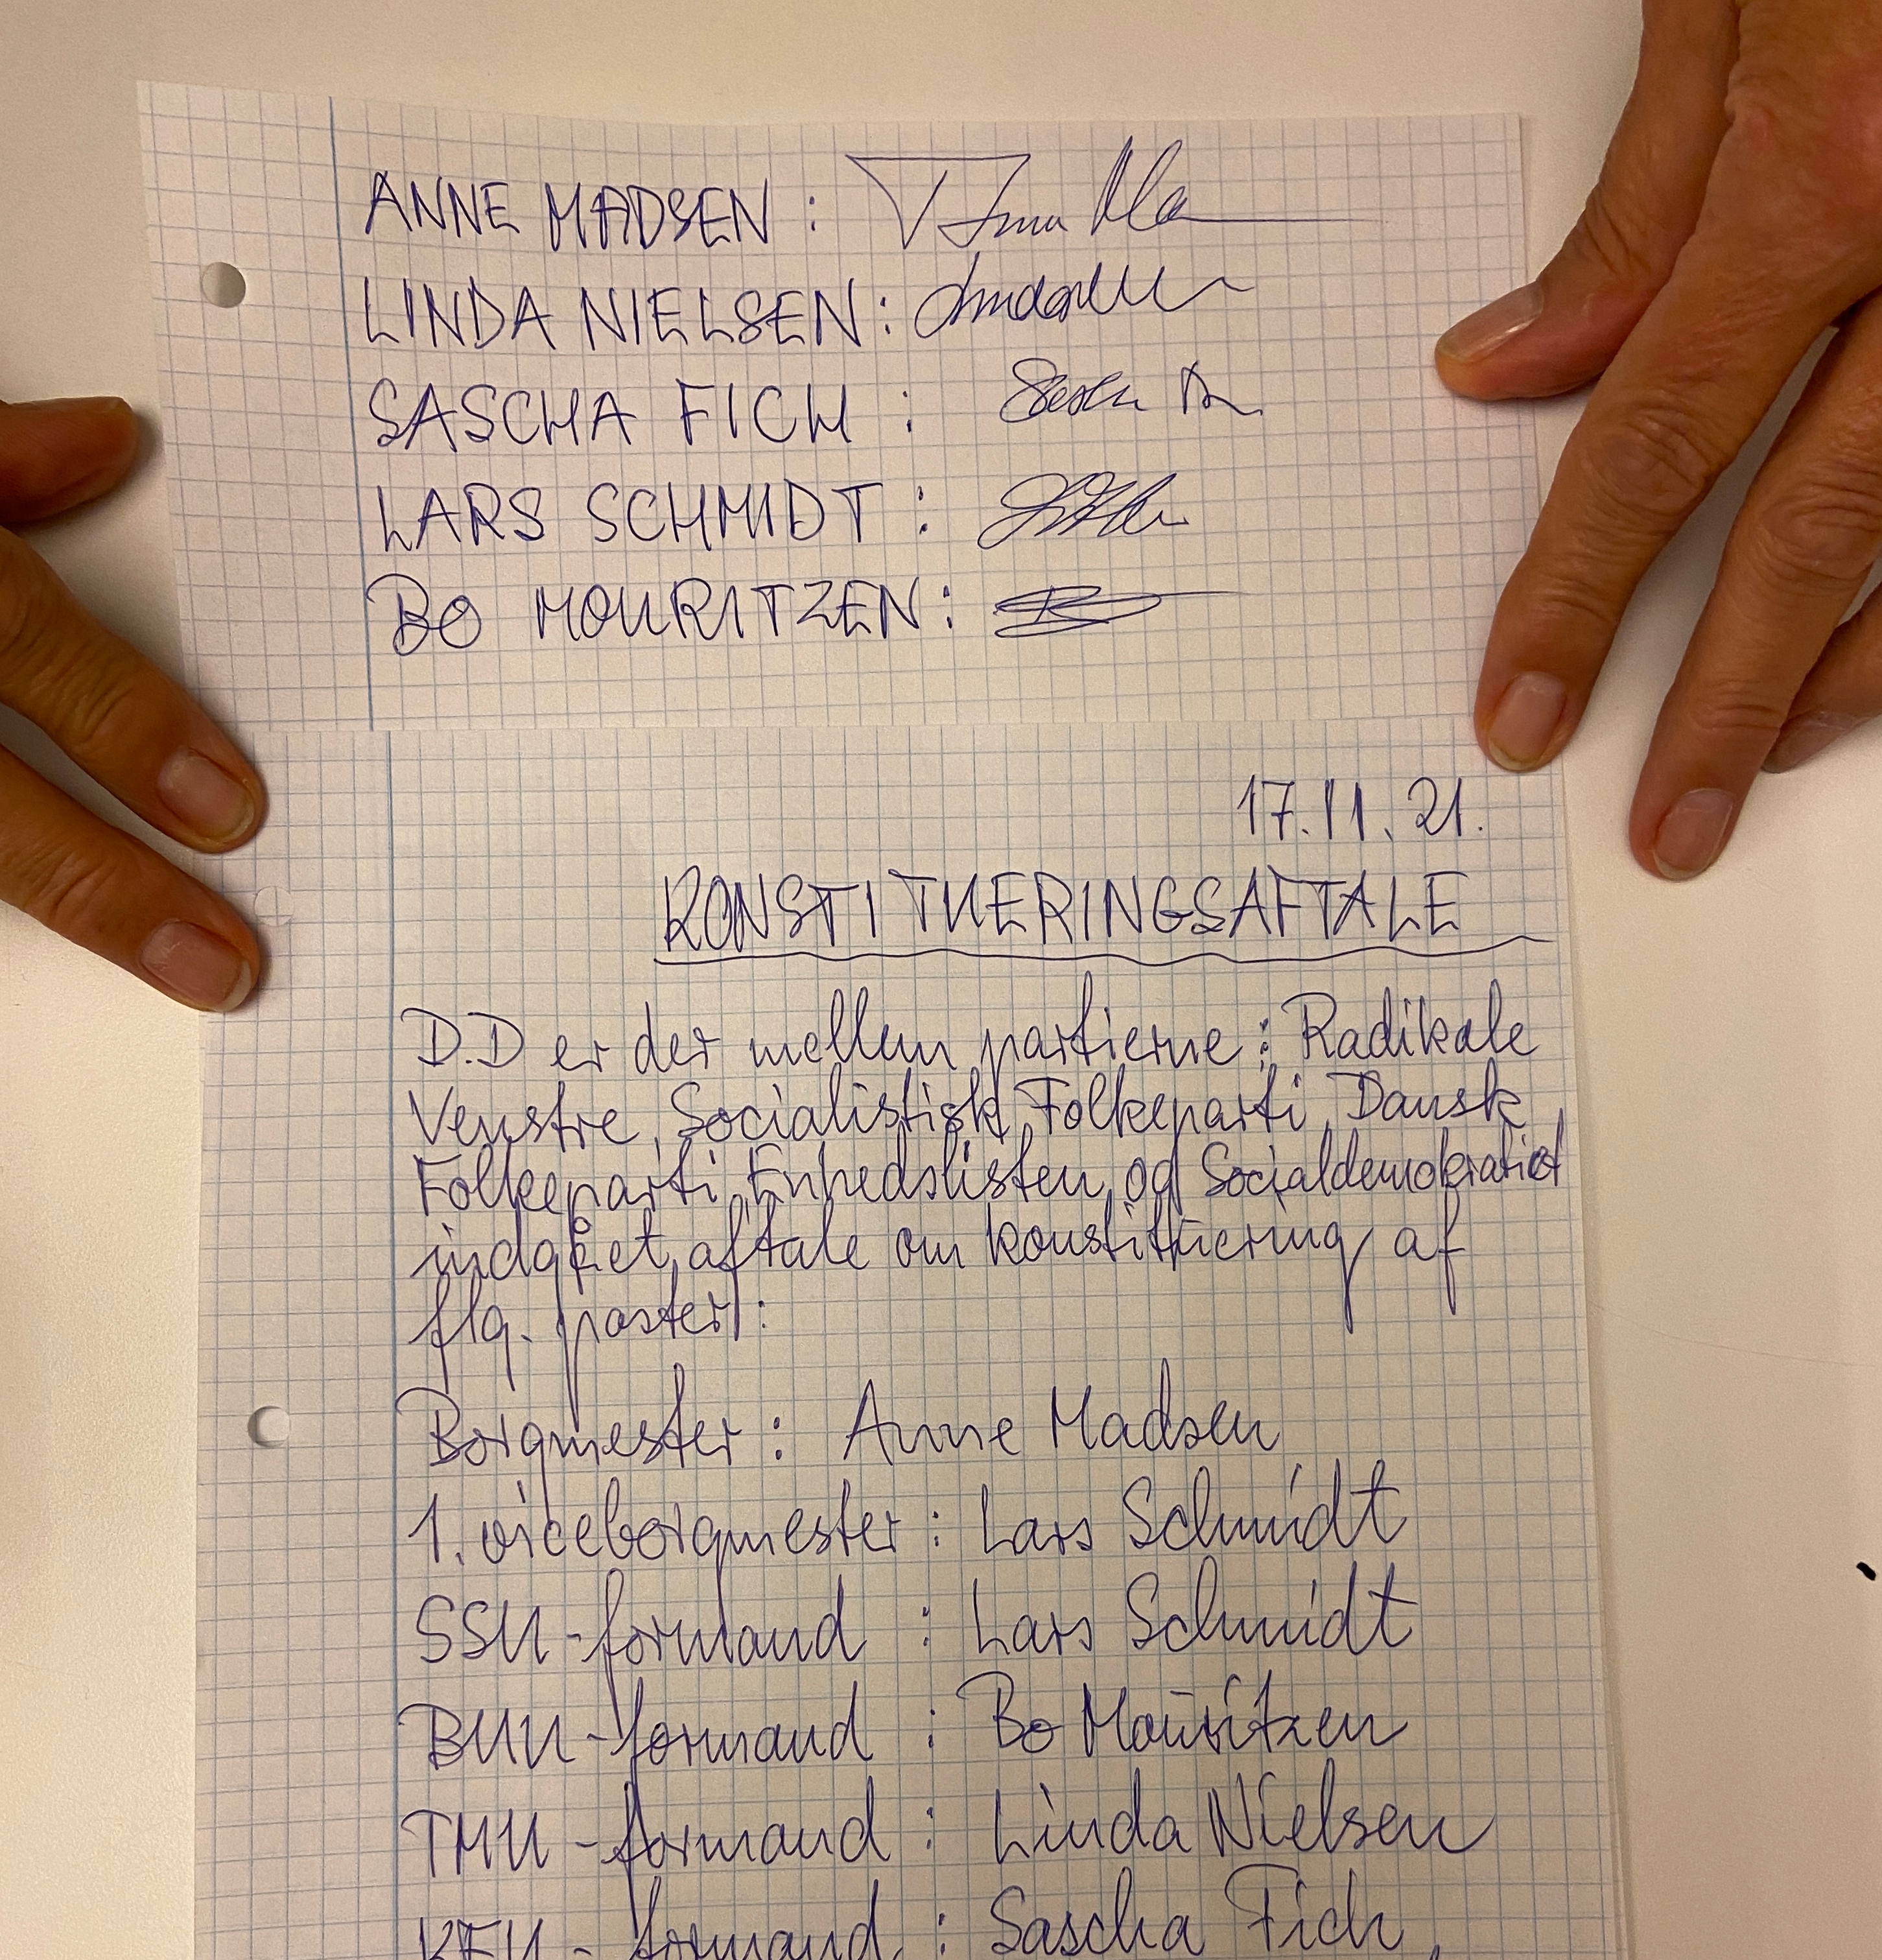 ANNE MADSEN :
LINDA NIELSEN :
SASCHA FICH :
LARS SCHMIDT :
BO MOURITZEN :
17.11.21.
KONSTITUERINGSAFTALE
D.D er der mellem partierne : Radikale
Venstre, Socialistisk Folkeparti, Dansk
Folkeparti, Enhedslisten, og Socialdemokratiet
indgået aftale om konstituering af
flg. poster :
Borgmester : Anne Madsen
1. viceborgmester : Lars Schmidt
SSU-formand : Lars Schmidt
BUU-formand : Bo Mouritzen
TMU-formand : Linda Nielsen
KFU-formand : Sascha Fich,